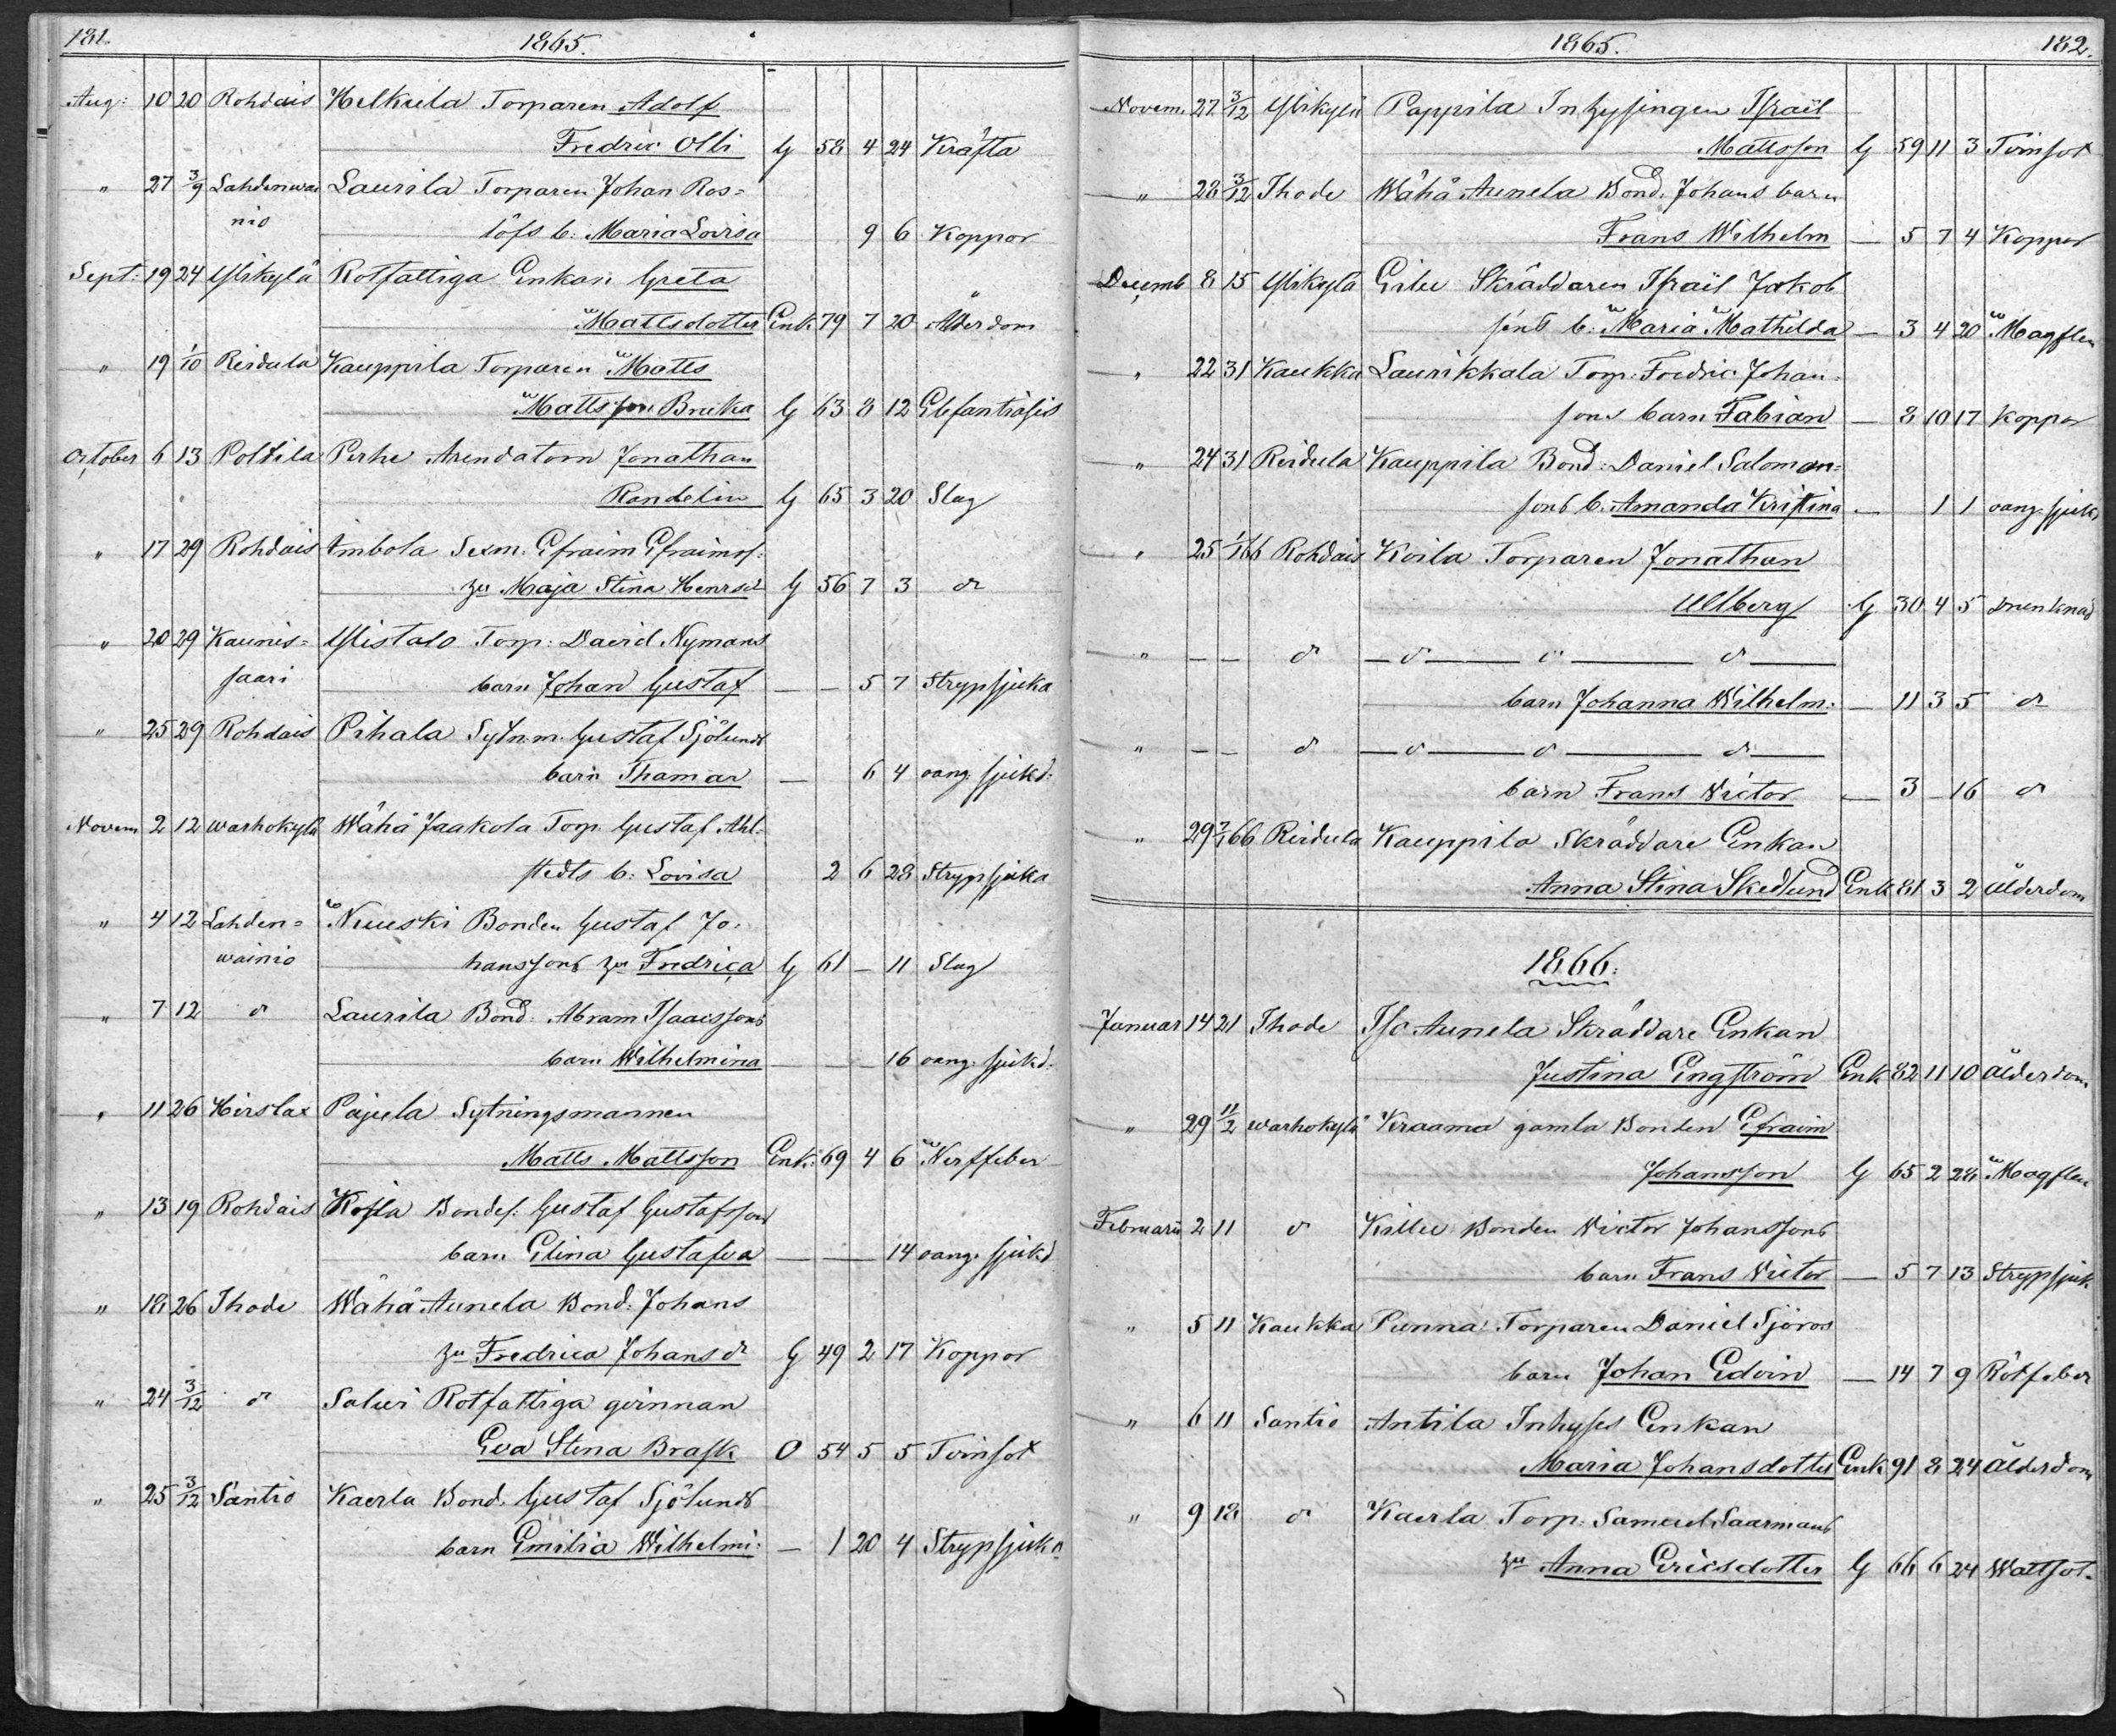 181. 1865.
Aug: 10 20 Rohdais Helkula Torparen Adolf
Fredric Olli G 58 4 24 Kräfta
" 27 3/9 Lahdenwai Laurila Torparen Johan Ros=
nio löfs b: Maria Lovisa 9 6 Koppor
Sept: 19 24 Ylikylä Rotfattiga Enkan Greta
Mattsdotter Enk. 79 7 20 Ålderdom
" 19 1/10 Reidula Kauppila Torparen Matts
Mattsson Bruka G 63 8 12 Elefantiasis
October 6 13 Poltila Perhe Arendatorn Jonathan
Randelin G 65 3 20 Slag
" 17 29 Rohdais Ambola Sexm. Efraim Efraimss:
hu Maja Stina Henrsd G 56 7 3 d:o
" 20 29 Kaunis= Ylistalo Torp: David Nymans
saari barn Johan Gustaf — — 5 7 Strypsjuka
" 25 29 Rohdais Pihala Sytn.m. Gustaf Sjölunds
barn Thamar — 6 4 oang. sjukd:
Novem 2 12 Warhokylä Wähä Jaakola Torp. Gustaf Ahl=
stedts b: Lovisa 2 6 28 Strypsjuka
" 4 12 Lahden= Nuuski Bonden Gustaf Jo=
wainio hanssons hu Fredrica G 61 — 11 Slag
" 7 12 d:o Laurila Bond: Abram Isaacssons
barn Wilhelmina — — — 16 oang. sjukd:
" 11 26 Hirslax Pajula Sytningsmannen
Matts Mattsson Enk: 69 4 6 Nerffeber
" 13 19 Rohdais Koila Bondes: Gustaf Gustafssons
barn Elina Gustafva — — 14 oang. sjukd
" 18 26 Thode Wähä Aunela Bond: Johans
hu Fredrica Johansd:r G 49 2 17 Koppor
" 24 3/12 d:o Saluri Rotfattiga qvinnan
Eva Stina Brask O 54 5 5 Tvinsot
" 25 3/12 Santio Kaerla Bond. Gustaf Sjölunds
barn Emilia Wilhelmi: — 1 20 4 Strypsjuka
1865. 182.
Novem. 27 3/12 Ylikylä Pappila Inhysingen Israel
Mattsson G 59 11 3 Tvinsot
" 28 3/12 Thode Wähä Aunela Bond: Johans barn
Frans Wilhelm — 5 7 4 Koppor
Decemb 8 15 Ylikylä Eilu Skräddaren Israel Jakob
sons b: Maria Mathilda — 3 4 20 Magflen
" 22 31 Kaukka Laurikkala Torp: Fredric Johan=
sons barn Fabian — 8 10 17 Koppor
" 24 31 Reidula Kauppila Bond: Daniel Saloman=
sons b. Amanda Kristina — 1 1 oang. sjukd
" 25 1/1 66 Rohdais Koila Torparen Jonathan
Ullberg G 30 4 5 drunknad
" — — d:o — d:o — d:o — d:o —
barn Johanna Wilhelm: — 11 3 5 d:o
" — — d:o — d:o — d:o — d:o —
barn Frans Victor — 3 — 16 d:o
" 29 7/1 66 Reidula Kauppila Skräddare Enkan
Anna Stina Skedlund Enk 81 3 2 Ålderdom
1866:
Januar 14 21 Thode Iso Aunela Skräddare Enkan
Justina Engström Enk 82 11 10 Ålderdom
" 29 11/2 Warhokylä Kraama gamla Bonden Efraim
Johansson G 65 2 28 Magflen
Februarii 2 11 d:o Killu Bonden Wictor Johanssons
barn Frans Victor — 5 7 13 Strypsjuk
" 5 11 Kaukka Punna Torparen Daniel Sjöros
barn Johan Edvin — 14 7 9 Rötfeber
" 6 11 Santio Antila Inhyses Enkan
Maria Johansdotter Enk 91 8 24 Ålderdom
" 9 18 d:o Kaerla Torp: Samuel Saarmans
hu Anna Ericsdotter G 66 6 24 Wattsot.